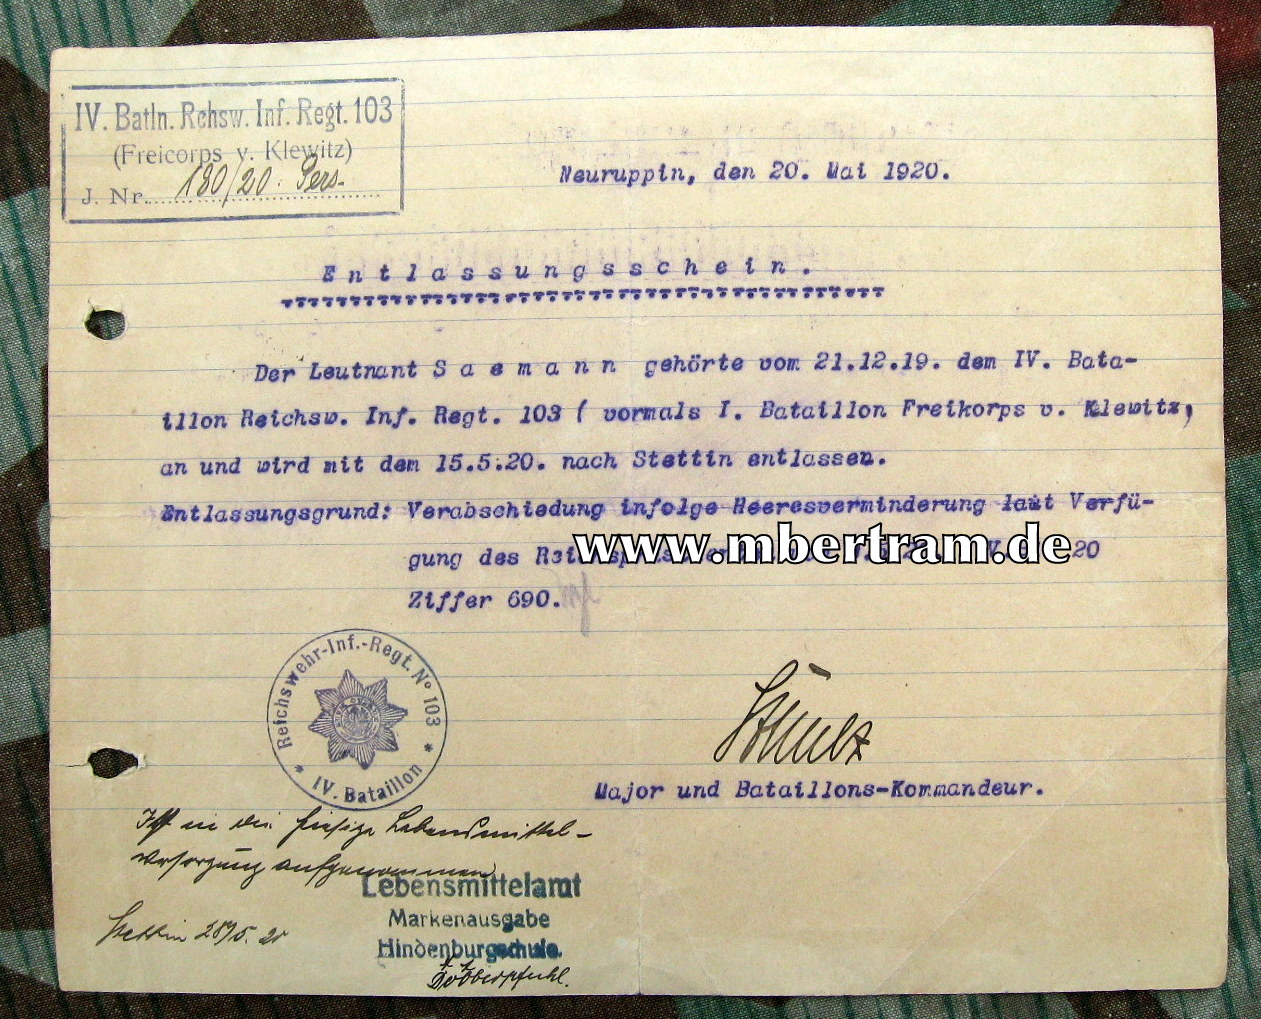 IV. Batln. Rchsw. Inf. Regt. 103
(Freicorps v. Klewitz)
J. Nr. 180/20. Pers.
Neuruppin, den 20. Mai 1920.
Entlassungsschein.
Der Leutnant Saemann gehörte vom 21.12.19. dem IV. Bata-
illon Reichsw. Inf. Regt. 103 ( vormals I. Bataillon Freikorps v. Klewitz,
an und wird mit dem 15.5.20. nach Stettin entlassen.
Entlassungsgrund: Verabschiedung infolge Heeresverminderung laut Verfü-
gung des
www.mbertram.de
20
Ziffer 690.
Reichswehr-Inf.-Regt. No 103
* IV. Bataillon *
Major und Bataillons-Kommandeur.
Ist in die hiesige Lebensmittel-
versorgung aufgenommen
Lebensmittelamt
Markenausgabe
Hindenburgschule.
Stettin 5. 20